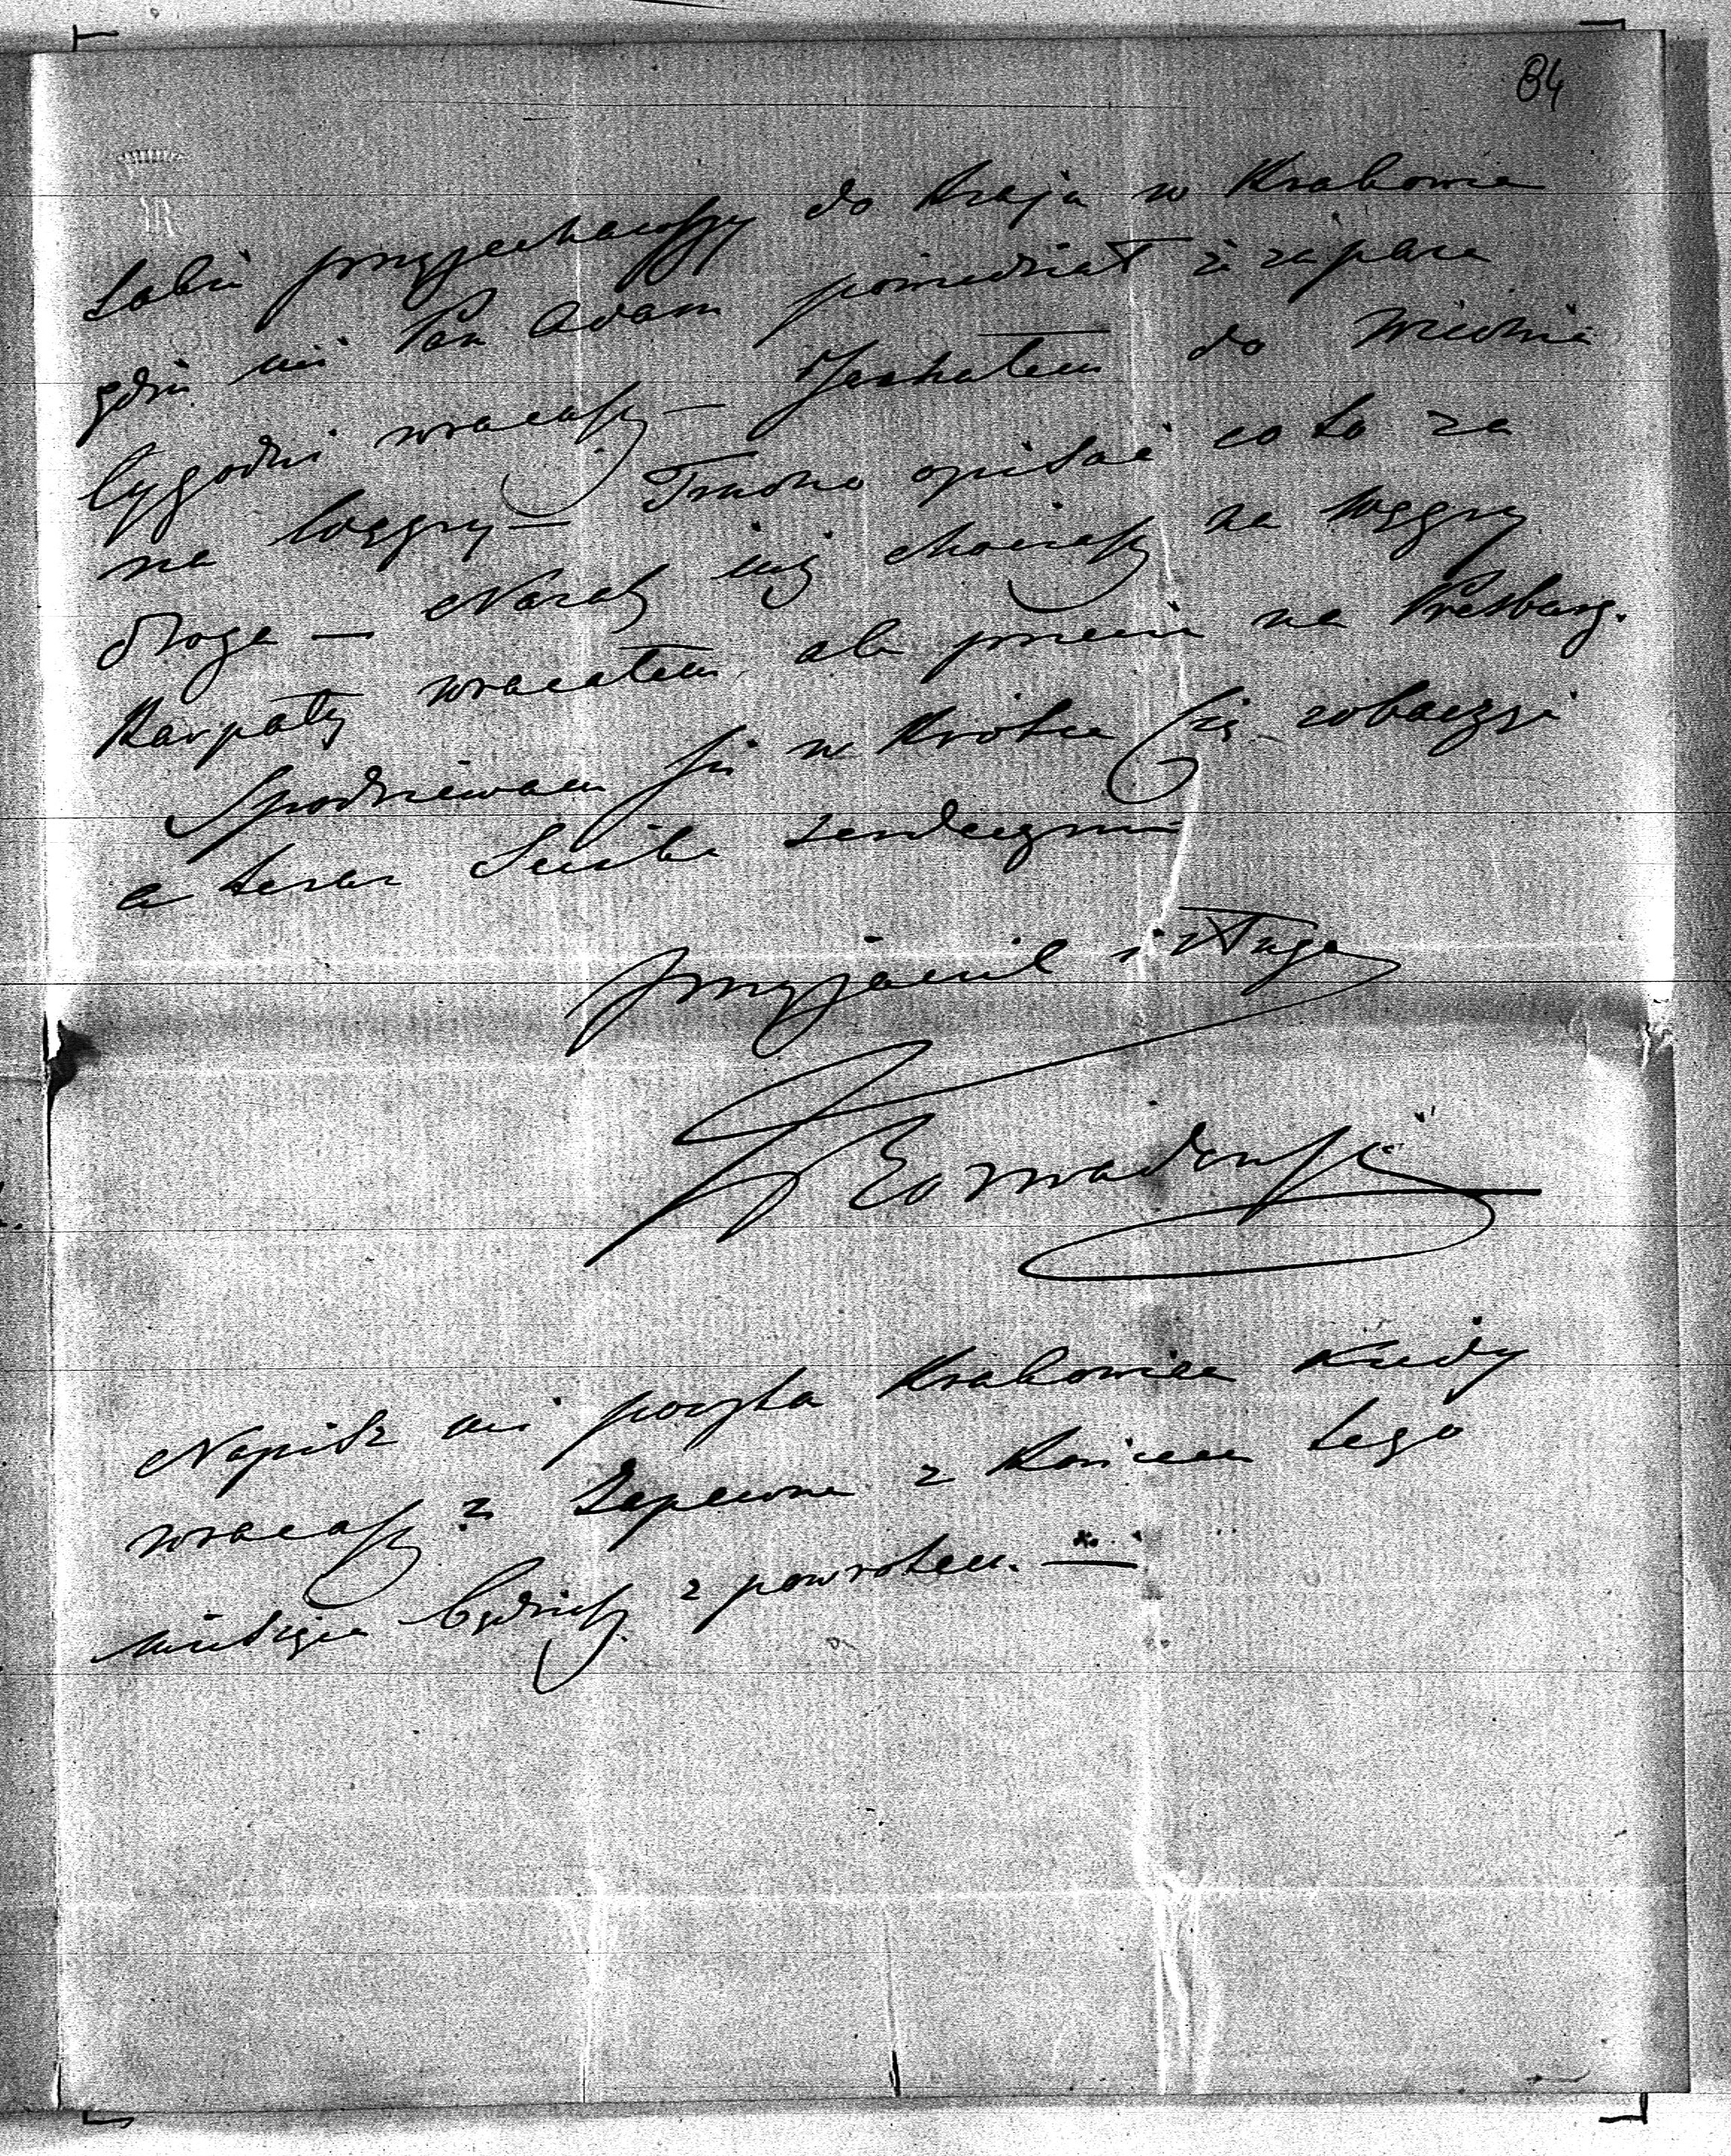 84
tobie przyjechawszy do Kraju w Krakowie
gdzie mi Pan Adam powiedział że za parę
tygodni wracasz — Jechałem do Wiednia
na Węgry — Trudno opisać co to za
droga — Nazad już chociasz na Węgry
Karpaty wracałem, ale przecie na Presburg.
Spodziewam się w krótce Cię zobaczyć
a teraz Ściskam serdecznie
przyjaciel i sługa
Napisz mi pocztą Krakowiec kiedy
wracasz? Zapewne z końcem tego
miesiąca będziesz z powrotem. —